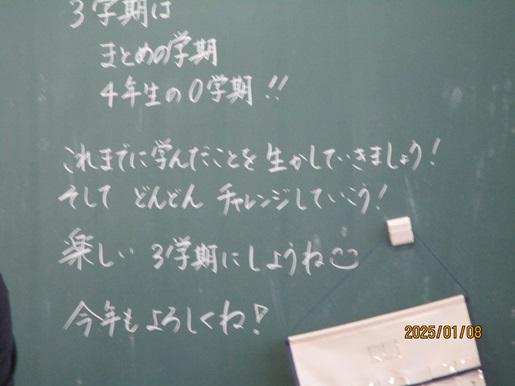 3学期は
まとめの学期
4年生の0学期!!
これまでに学んだことを生かしていきましょう!
そして どんどん チャレンジしていこう!
楽しい 3学期にしようね
今年もよろしくね!
2025/01/08